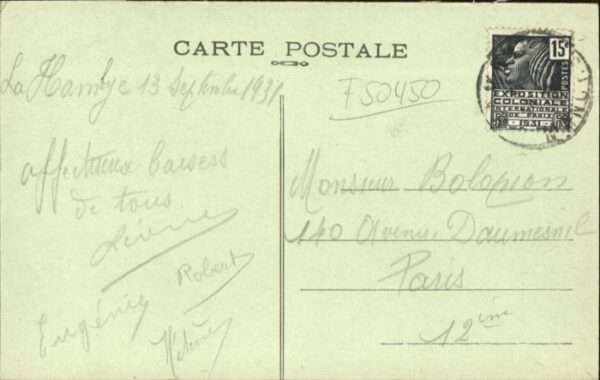 CARTE POSTALE
La Hambye 13 Septembre 1931
F50450
15c
POSTES
EXPOSITION
COLONIALE
INTERNATIONALE
DE PARIS
1931
affectueux baisers
de tous
Robert
Eugénie
Monsieur Bolopion
140 Avenue Daumesnil
Paris
12ème